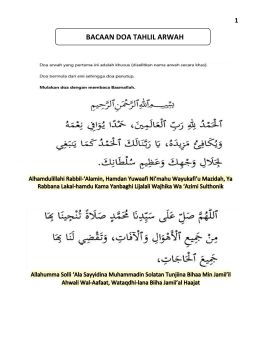 1
BACAAN DOA TAHLIL ARWAH
Doa arwah yang pertama ini adalah khusus (disebitkan nama arwah secara khas).
Doa bermula dari sini sehingga doa penutup.
Mulakan doa dengan membaca Basmallah.
بِسْمِ اللَّهِ الرَّحْمَٰنِ الرَّحِيمِ
الْحَمْدُ لِلَّهِ رَبِّ الْعَالَمِينَ، حَمْدًا يُوَافِي نِعَمَهُ
وَيُكَافِئُ مَزِيدَهُ، يَا رَبَّنَا لَكَ الْحَمْدُ كَمَا يَنْبَغِي
لِجَلَالِ وَجْهِكَ وَعَظِيمِ سُلْطَانِكَ.
Alhamdulillahi Rabbil-'Alamin, Hamdan Yuwaafi Ni'mahu Wayukafi'u Mazidah, Ya
Rabbana Lakal-hamdu Kama Yanbaghi Lijalali Wajhika Wa 'Azimi Sulthonik
اللَّهُمَّ صَلِّ عَلَى سَيِّدِنَا مُحَمَّدٍ صَلَاةً تُنْجِينَا بِهَا
مِنْ جَمِيعِ الْأَهْوَالِ وَالْآفَاتِ، وَتَقْضِي لَنَا بِهَا
جَمِيعَ الْحَاجَاتِ،
Allahumma Solli 'Ala Sayyidina Muhammadin Solatan Tunjiina Bihaa Min Jamii'il
Ahwali Wal-Aafaat, Wataqdhi-lana Biha Jamii'al Haajat